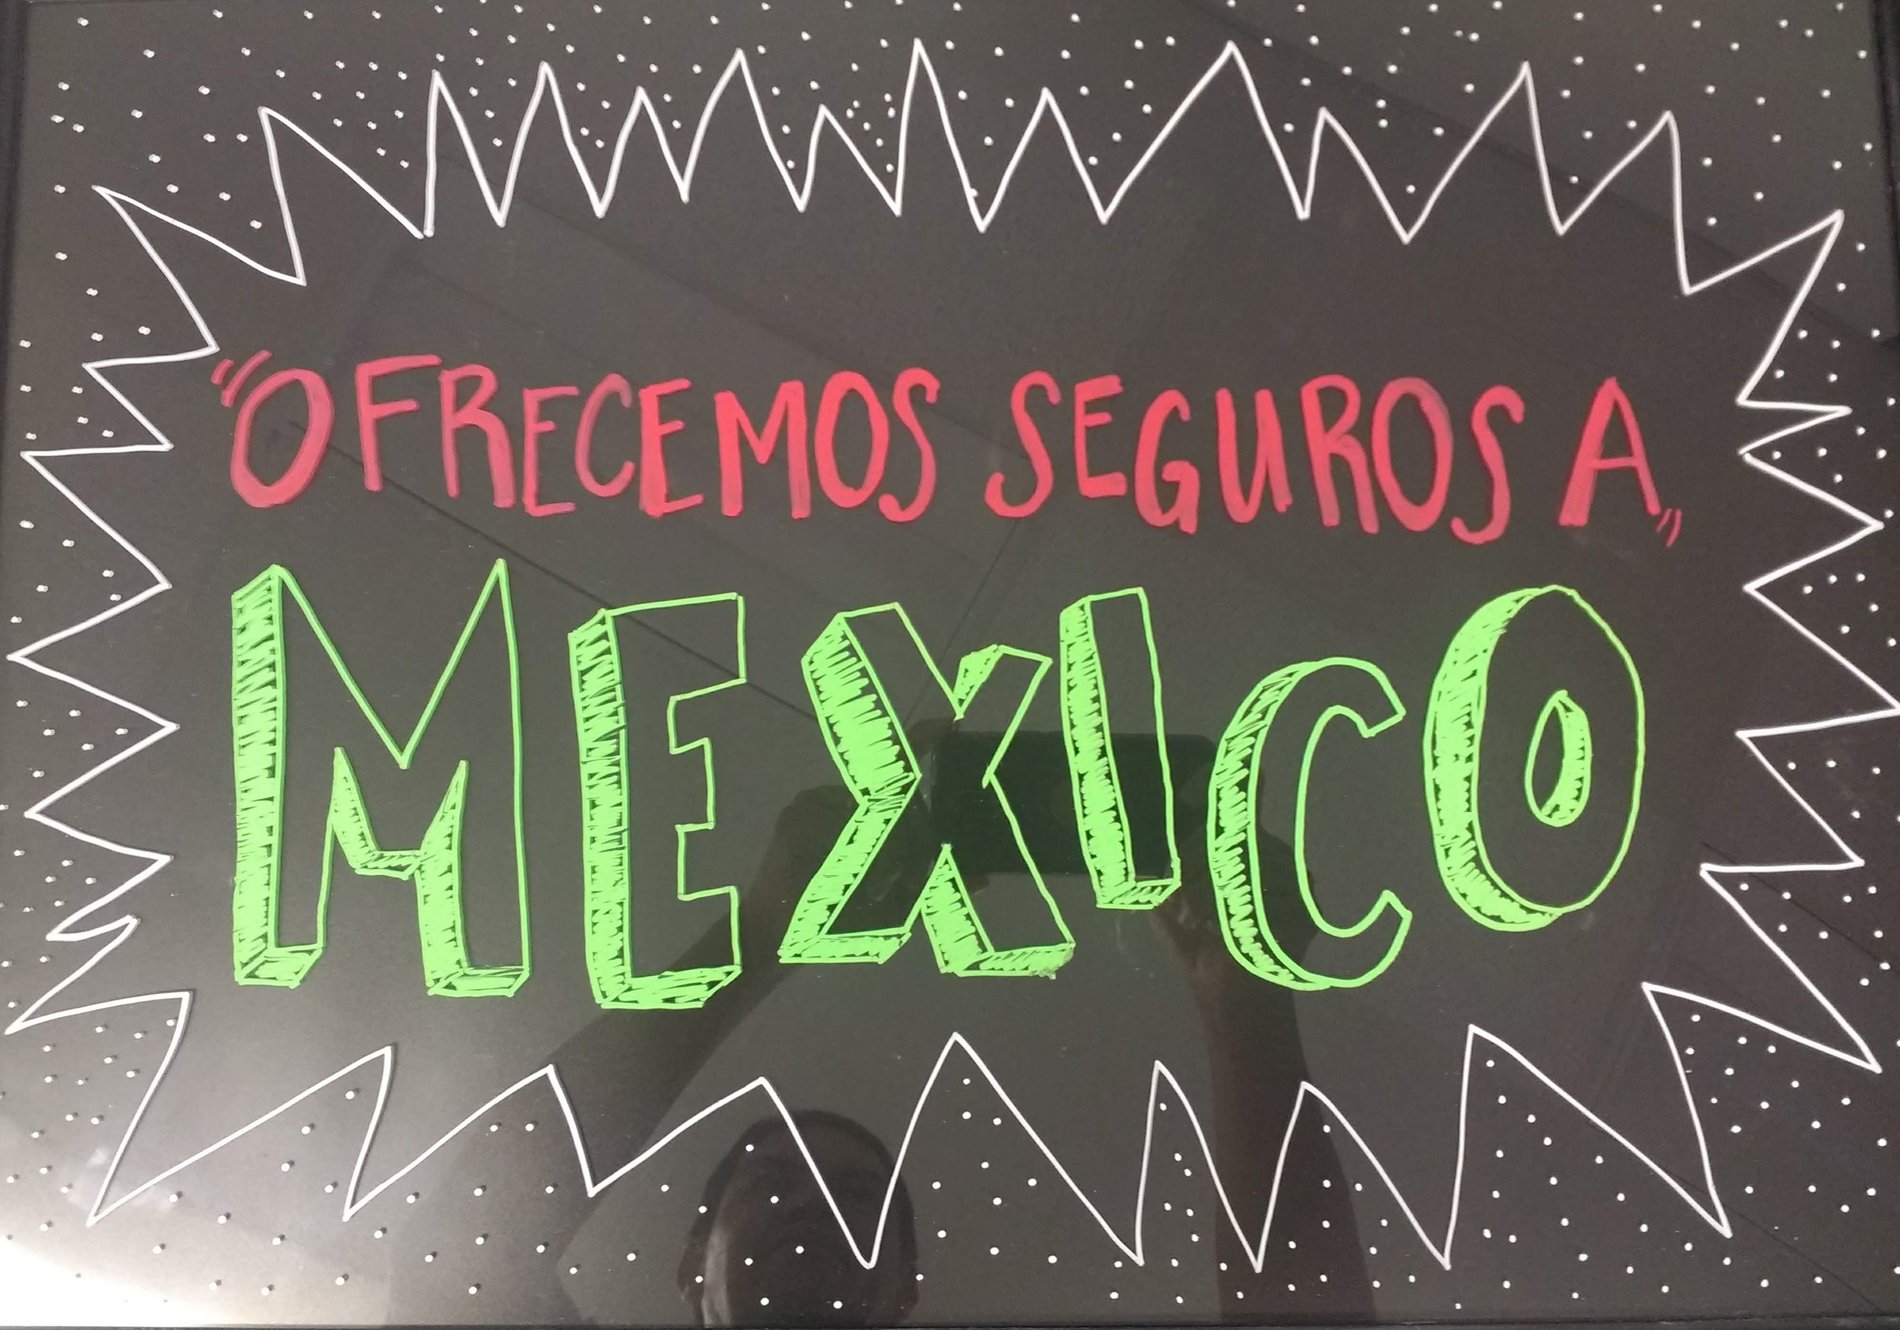 "OFRECEMOS SEGUROS A"
MEXICO